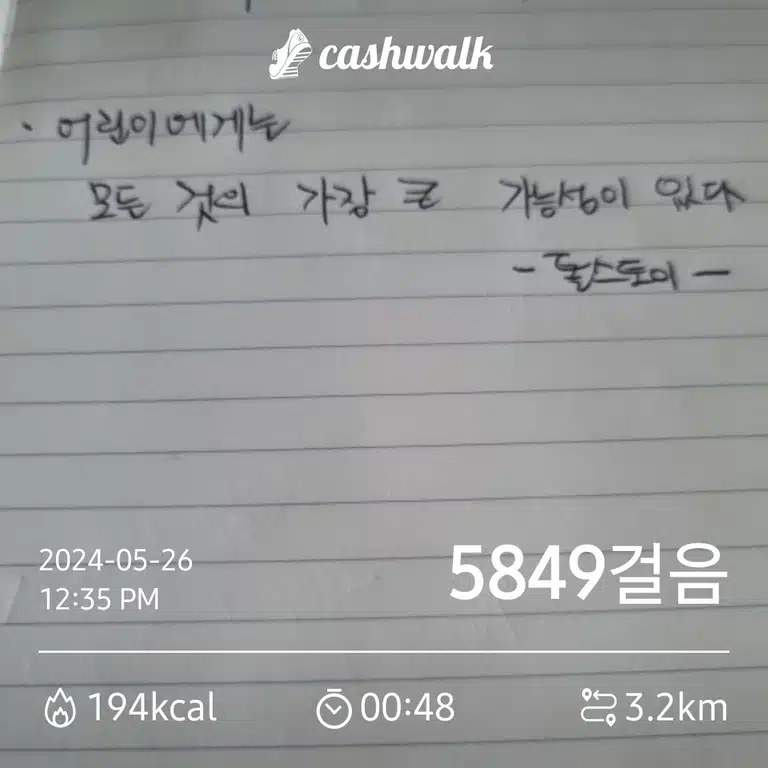 cashwalk
· 어린이에게는
모든 것의 가장 큰 가능성이 있다
- 톨스토이 -
2024-05-26
12:35 PM
5849걸음
194kcal 00:48 3.2km